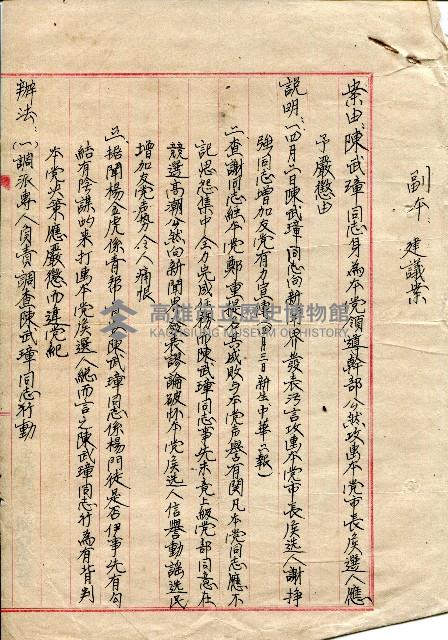 副本 建議案
案由：陳武璋同志身為本党領導幹部公然攻击本党市長候選人應
予嚴懲由
説明：一四月二日陳武璋同志向新聞界發表污言攻击本党市長候選人謝掙
強同志增加友党有力宣傳(四月三日新生中華二報)
二查謝同志經本党鄭重提名其成敗与本党声譽有関凡本党同志應不
記恩怨集中全力完成任務而陳武璋同志事先未竟上級党部同意在
競選高潮公然向新聞界發表謬論破怀本党侯选人信譽動謡选民
增加友党声势令人痛恨
三据聞楊金虎係青帮 陳武璋同志係楊門徒是否伊事先有勾
結有陰謀的来打击本党侯選人総而言之陳武璋同志行為有背判
本党決策應嚴懲而違党紀
辦法：(一)調派專人負責調查陳武璋同志行動
高雄市立歷史博物館
KAOHSIUNG MUSEUM OF HISTORY